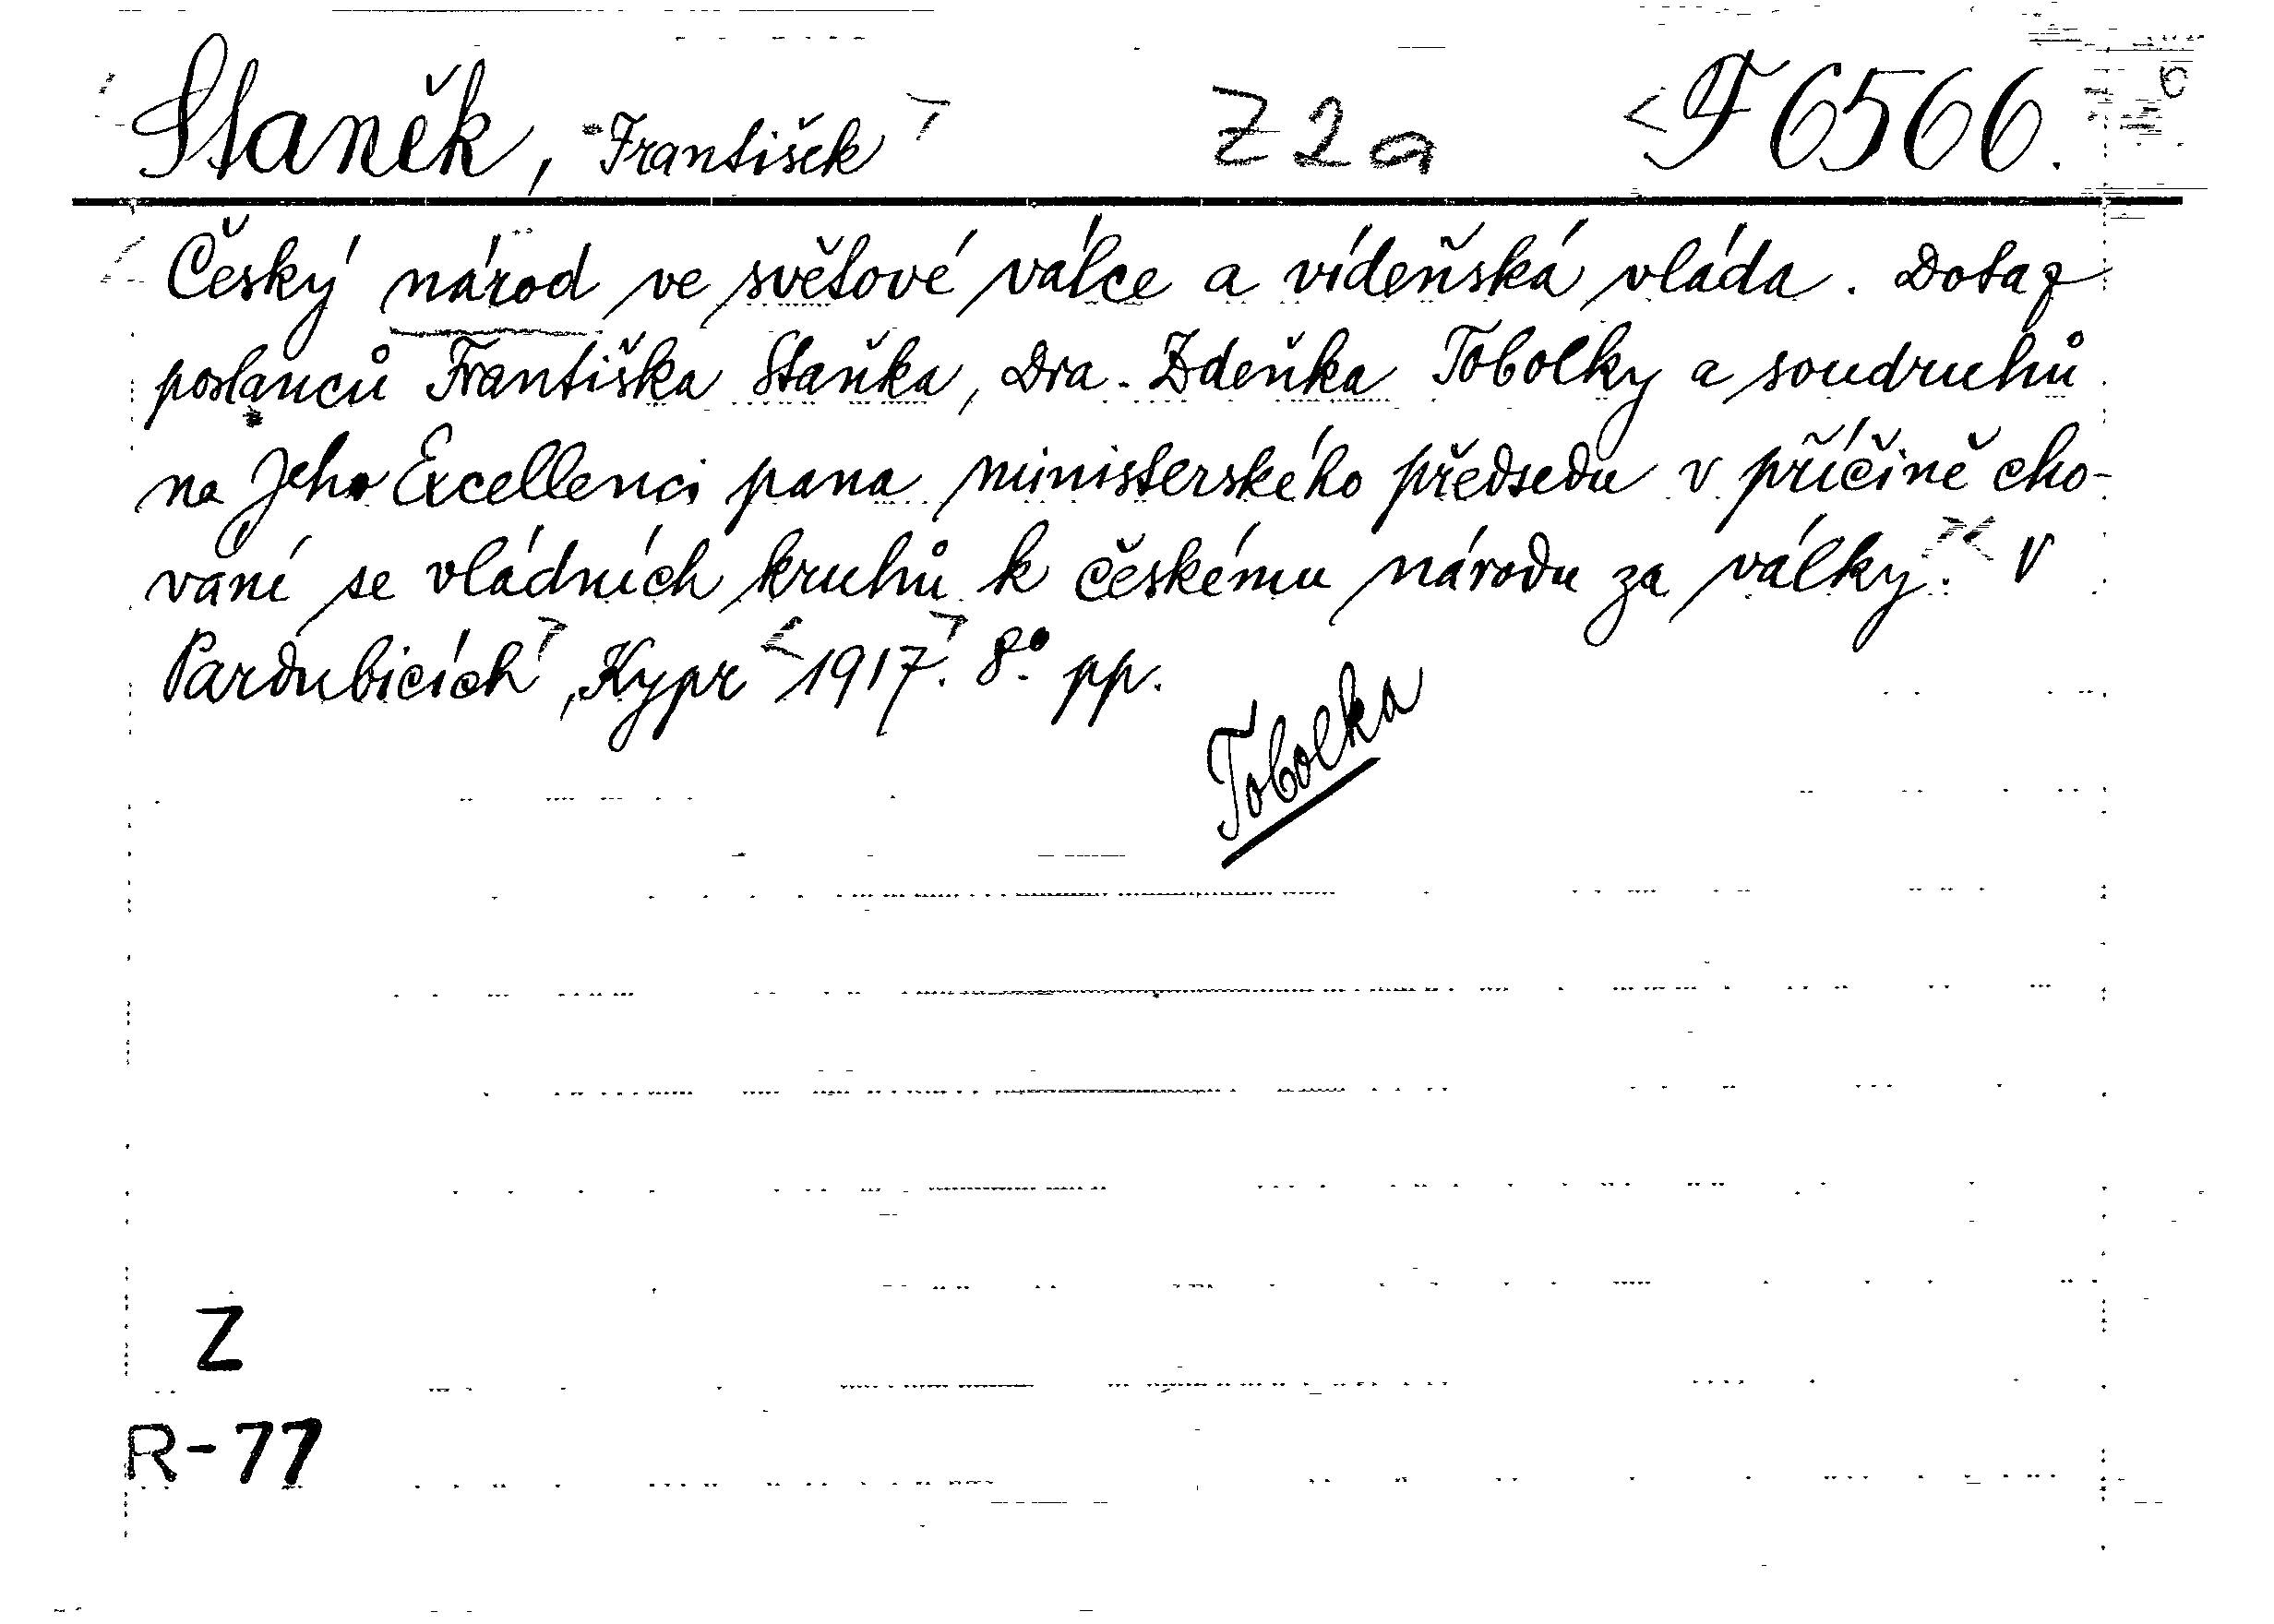 Staněk, František Z2a F 6566.
Český národ ve světové válce a vídeňská vláda. Dotaz
poslanců Františka Staňka, Dra. Zdeňka Tobolky a soudruhů
na Jeho Excellenci pana ministerského předsedu v příčině cho-
vání se vládních kruhů k českému národu za války. V
Pardubicích, Kypr 1917. 8° pp.
Tobolka
Z
R-77